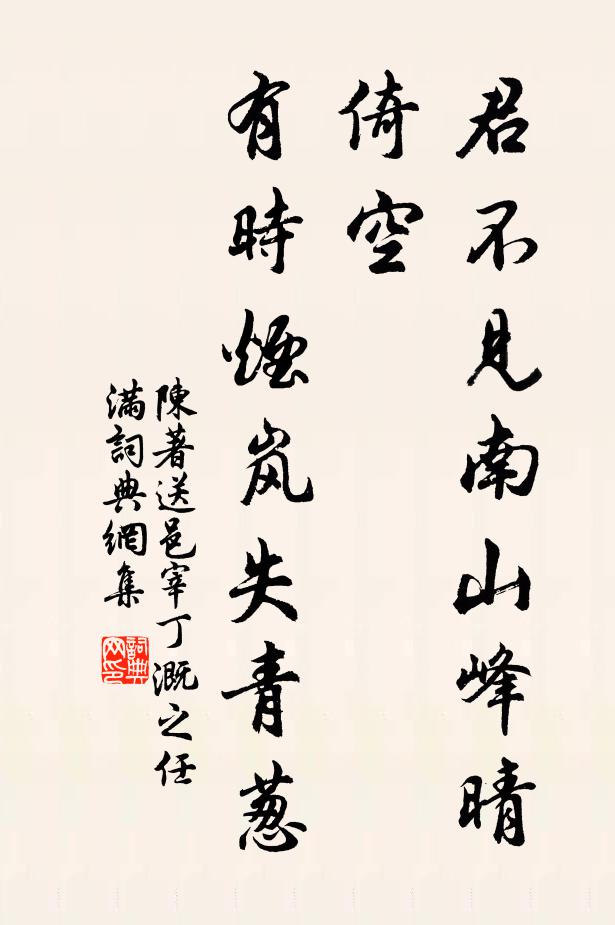 君不見南山峰晴
倚空
有時煙岚失青葱
陳著送邑宰丁溉之任
滿詞典網集
詞典网印